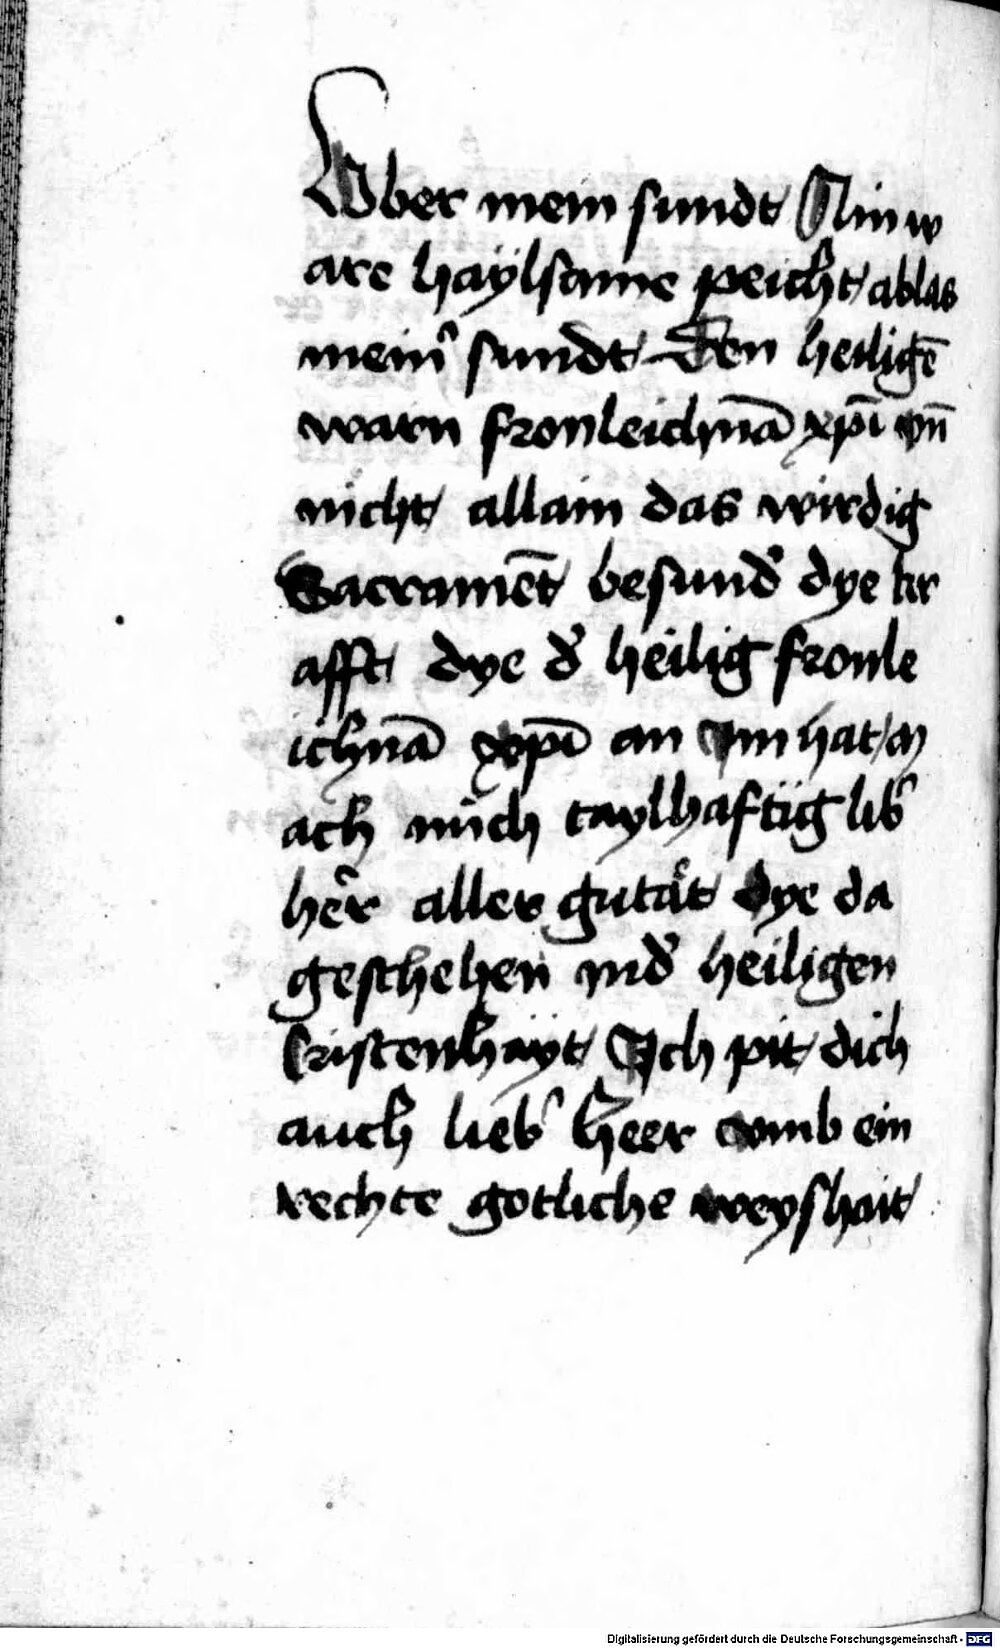 Vber mein sundt Ain w
are haÿlsame peicht ablas
mein sundt Den heiligē
warn fronleichnā xp̄i vn̄
nicht allain das wirdig
Sacramēt besund dye kr
afft dye d heilig fronle
ichnā xp̄i an Im hat m
ach mich taylhaftig lib
her aller gutät dye da
geschehen ind heiligen
Cristenhayt Ich pit dich
auch lieb Heer vmb ein
rechte gotliche weyshait
Digitalisierung gefördert durch die Deutsche Forschungsgemeinschaft - DFG